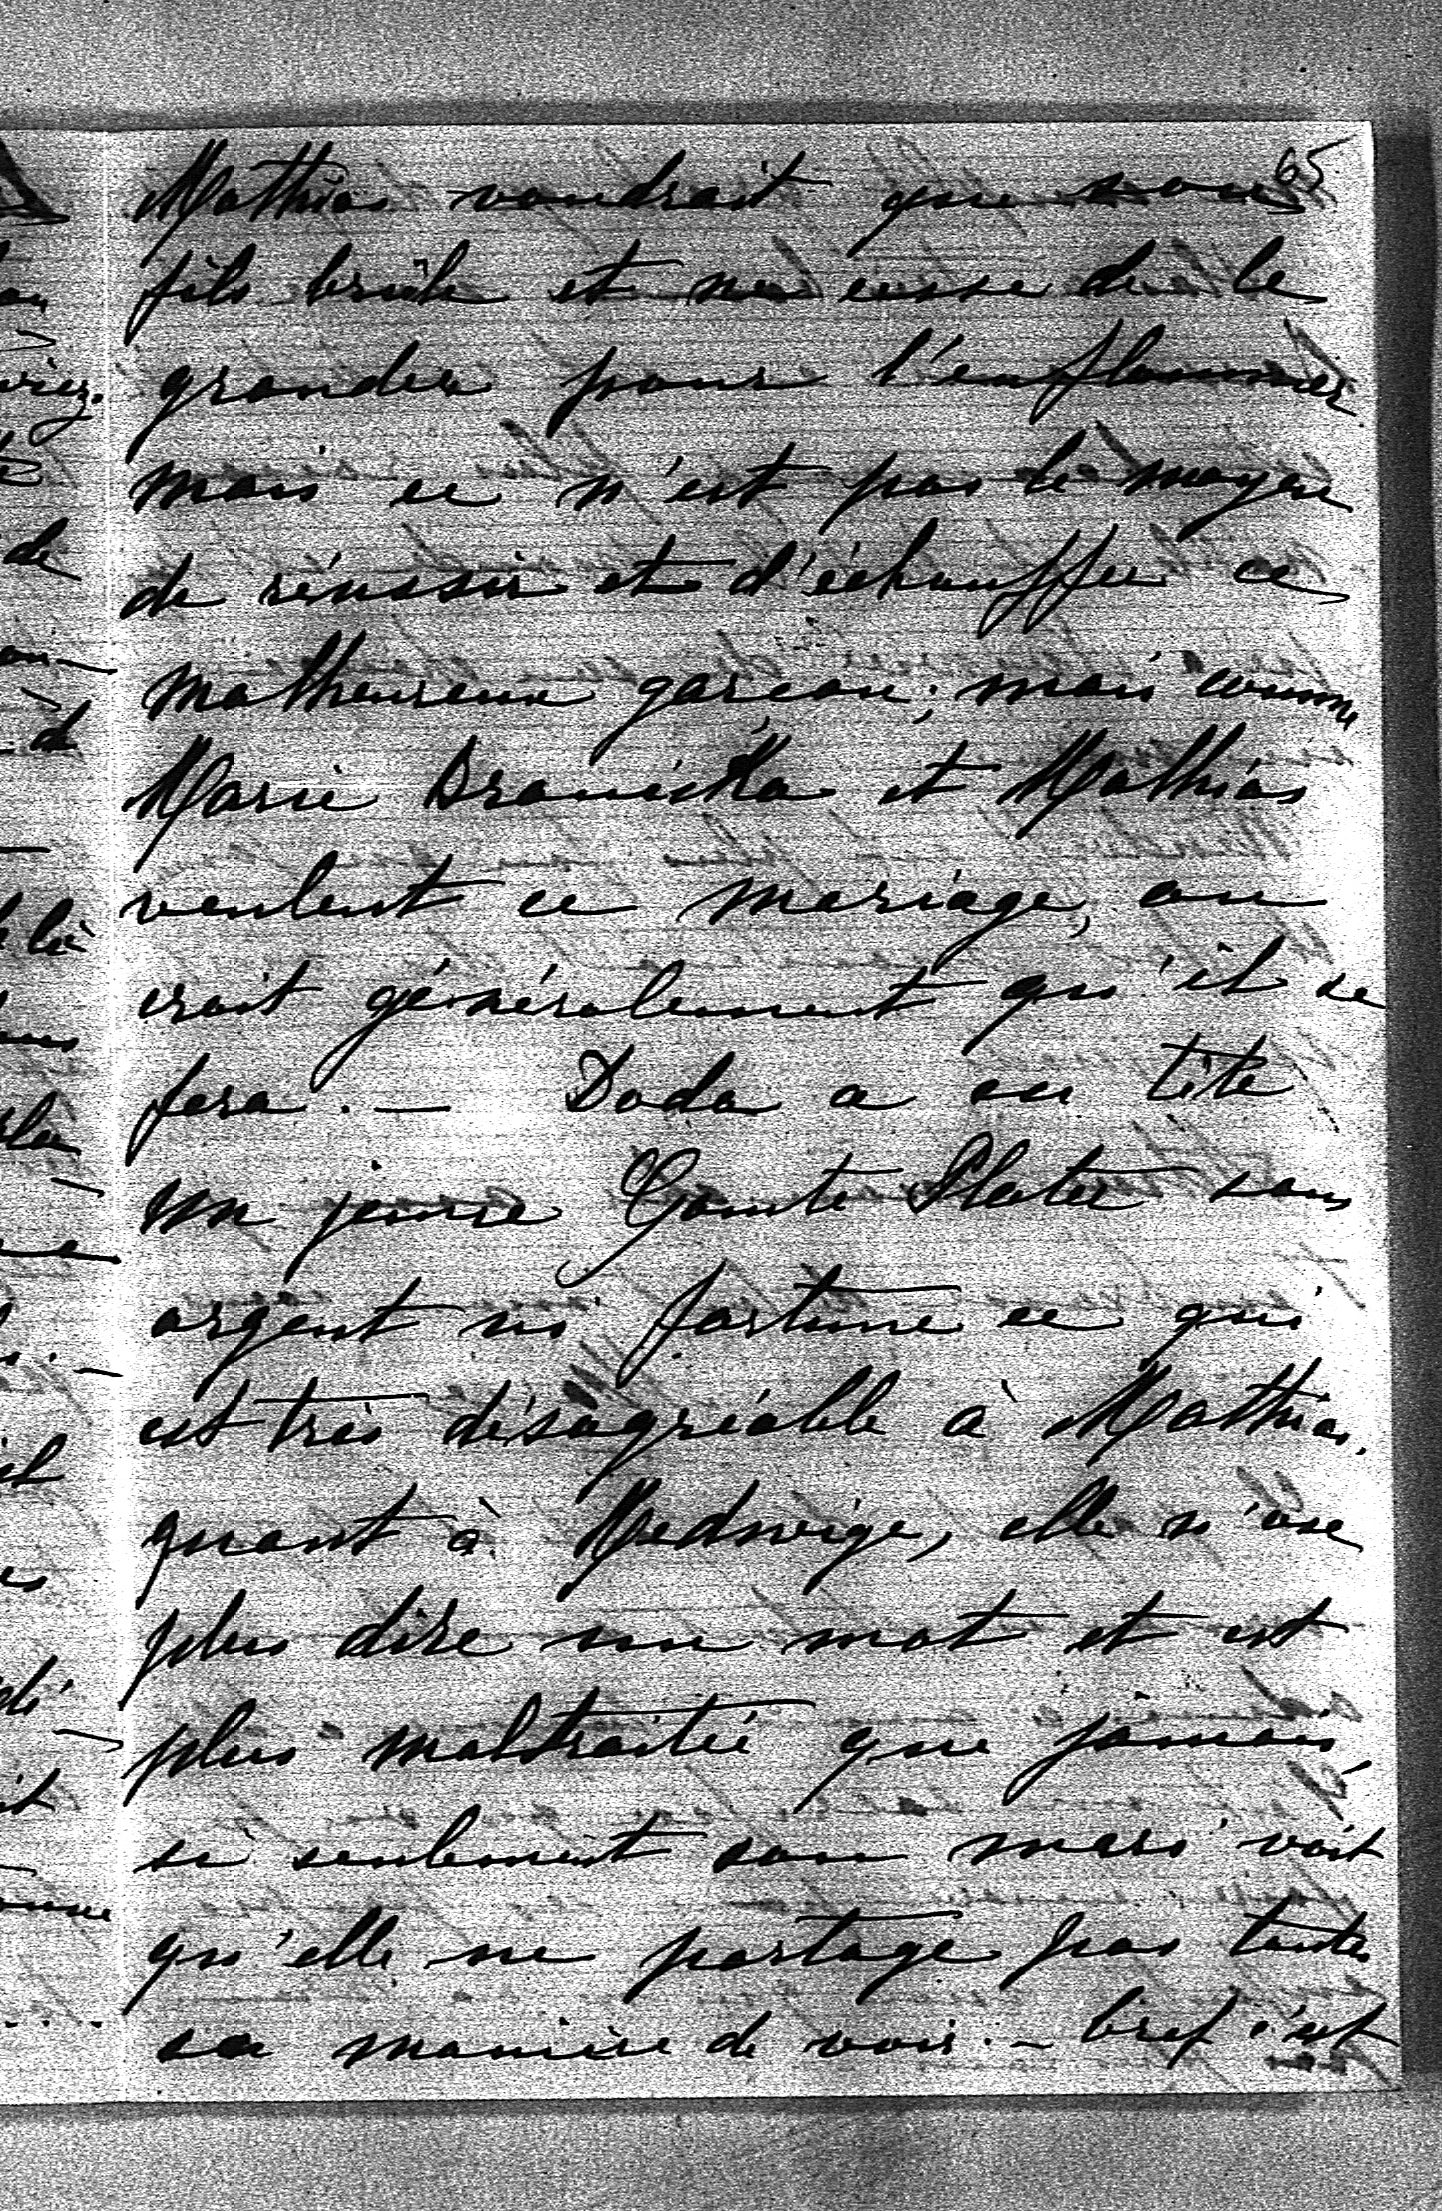 65
Mathias voudrait que son
fils brûle et ne cesse de le
gronder pour l'enflammer
mais ce n'est pas le moyen
de réussir et d'échauffer ce
malheureux garçon; mais comme
Marie Branicka et Mathias
veulent ce mariage, on
croit généralement qu'il se
fera. — Doda a en tête
un jeune Comte Plater sans
argent ni fortune ce qui
est très désagréable à Mathias.
quant à Hedwige, elle n'ose
plus dire un mot et est
plus maltraitée que jamais,
si seulement son mari voit
qu'elle ne partage pas toute
sa manière de voir. — bref c'est